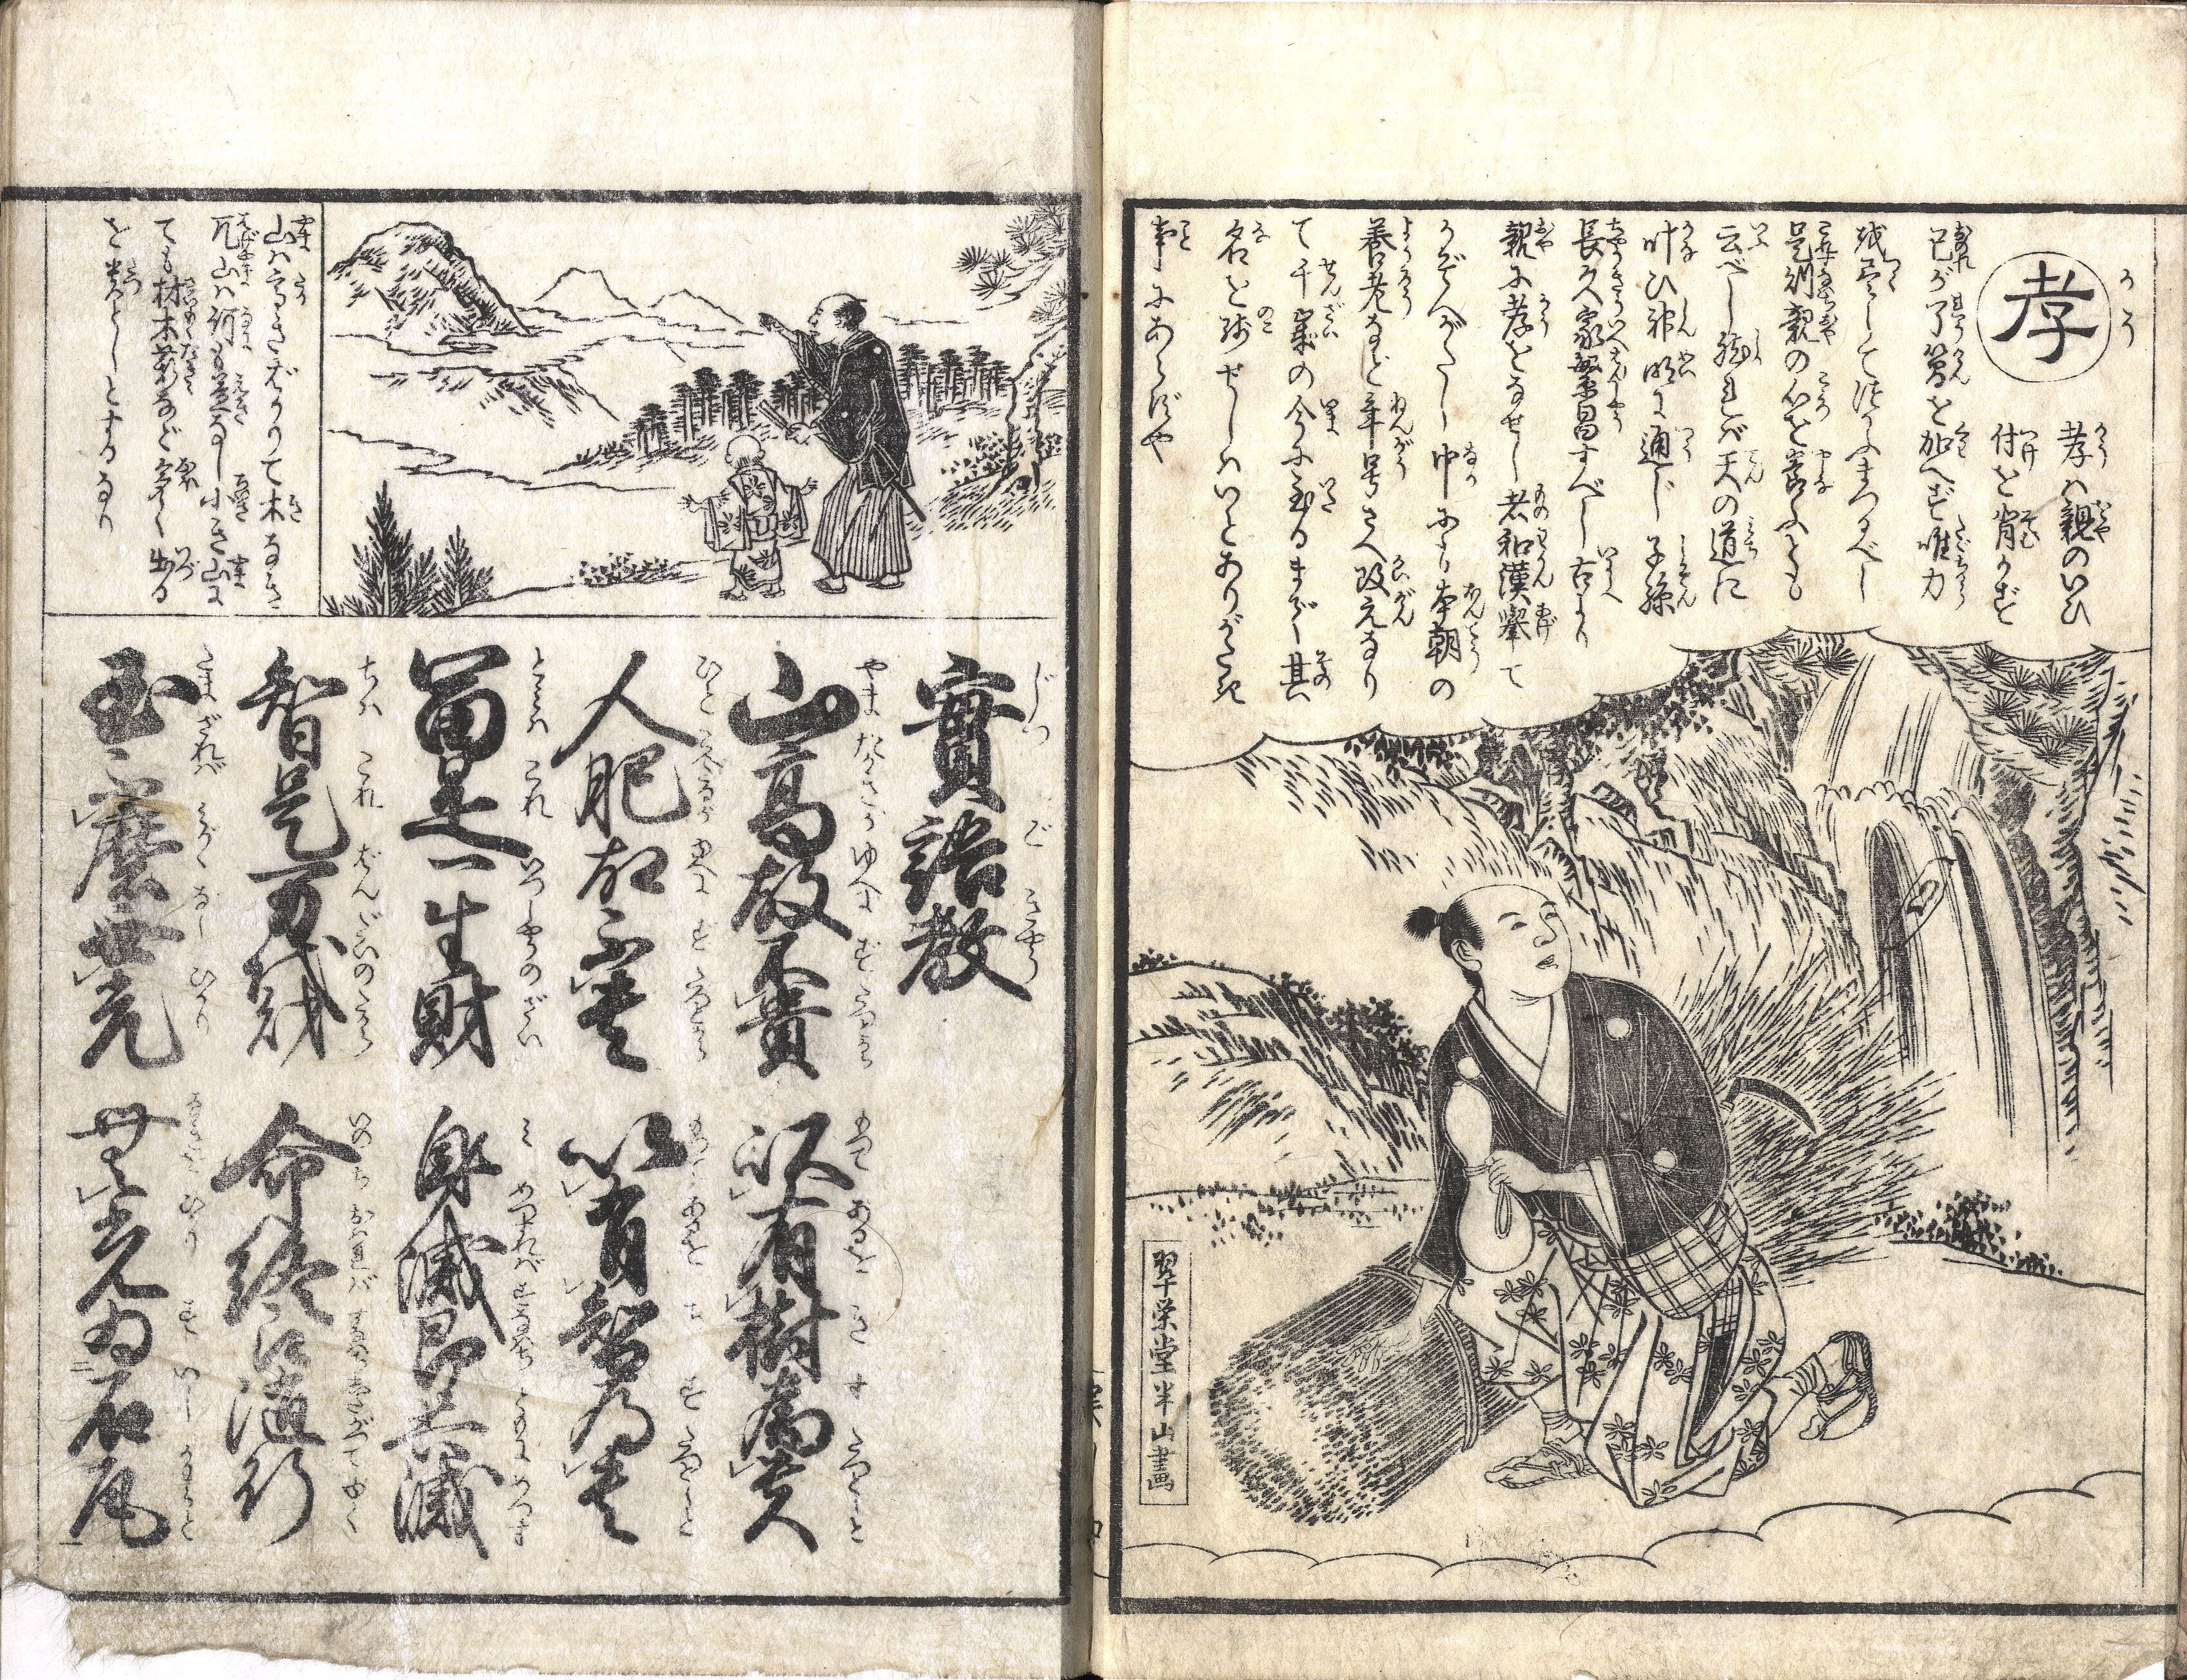 孝
孝は親のいひ
付を背かず
己が了簡を加へず唯力
を尽して仕ふまつるべし
是則親の心を養ふとも
云べし然れば天の道に
叶ひ神明に通じ子孫
長久家繁昌すべし古より
親に孝をなせし者和漢挙て
かぞへがたし中にも本朝の
養老など年号さへ改元なり
て千歳の今に至るまで其
名を残せしはいとありがたき
事にあらずや
翠栄堂半山画
山は高きばかりて木なき
兀山は何の益なし小き山に
ても材木薪など多く出る
を貴としとするなり
實語教
山高故不貴 以有樹為貴
人肥故不貴 以有智為貴
富是一生財 身滅即共滅
智是万代財 命終即随行
玉不磨無光 無光為石瓦